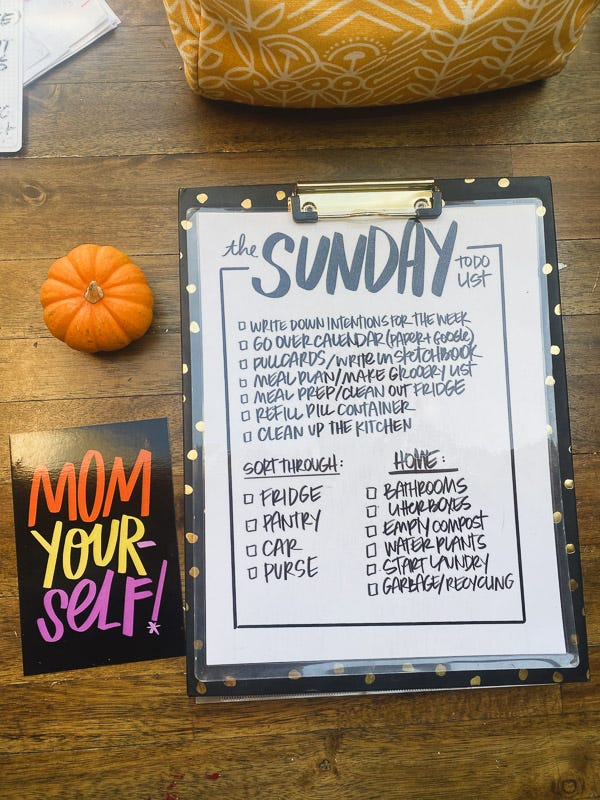 the SUNDAY TODO LIST
WRITE DOWN INTENTIONS FOR THE WEEK
GO OVER CALENDAR (PAPER + GOOGLE)
PULL CARDS/WRITE IN SKETCHBOOK
MEAL PLAN/MAKE GROCERY LIST
MEAL PREP/CLEAN OUT FRIDGE
REFILL PILL CONTAINER
CLEAN UP THE KITCHEN
SORT THROUGH:
FRIDGE
PANTRY
CAR
PURSE
HOME:
BATHROOMS
LITTER BOXES
EMPTY COMPOST
WATER PLANTS
START LAUNDRY
GARBAGE/RECYCLING
MOM
YOUR-
SELF!